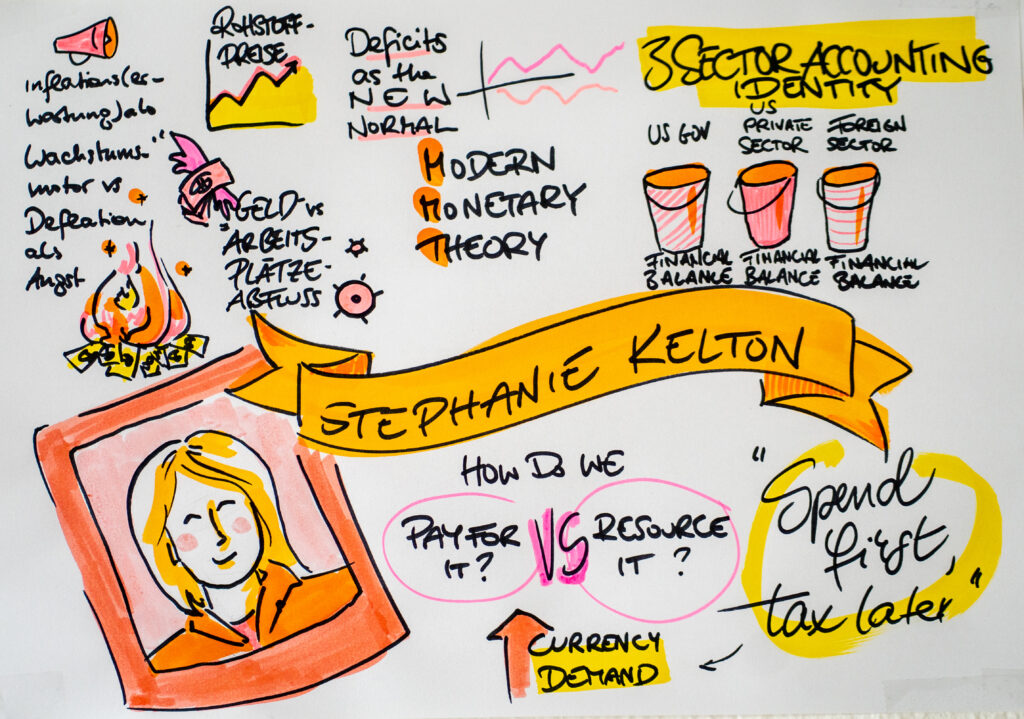 Inflations(er-
wartung) als
Wachstums-
motor vs
Deflation
als
Angst
ROHSTOFF-
PREISE
GELD- vs
ARBEITS-
PLÄTZE-
ABFLUSS
Deficits
as the
NEW
NORMAL
MODERN
MONETARY
THEORY
3 SECTOR ACCOUNTING
IDENTITY
US GOV
US
PRIVATE
SECTOR
FOREIGN
SECTOR
FINANCIAL
BALANCE
FINANCIAL
BALANCE
FINANCIAL
BALANCE
STEPHANIE KELTON
HOW DO WE
PAY FOR
IT?
VS
RESOURCE
IT?
"Spend
first,
tax later"
CURRENCY
DEMAND